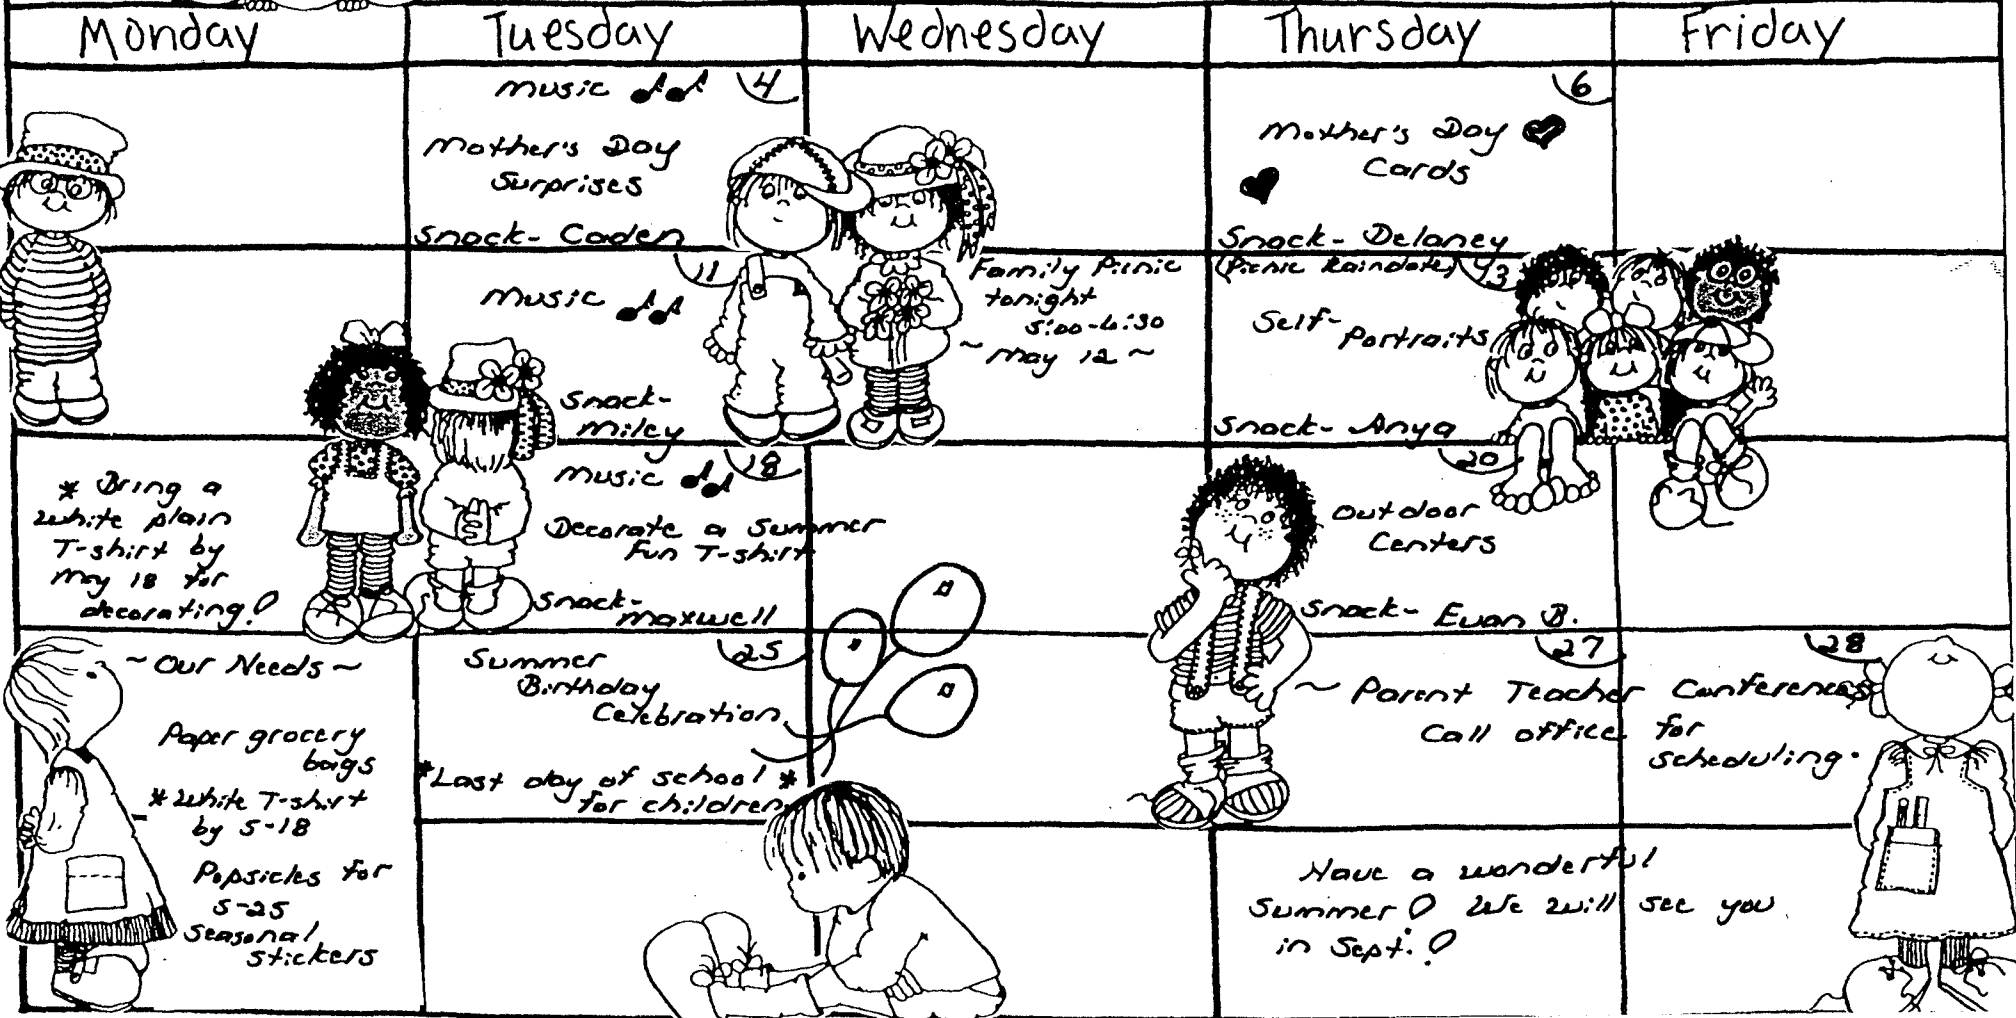 Monday
Tuesday
Wednesday
Thursday
Friday
Music
4
Mother's Day
Surprises
Snack- Caden
6
Mother's Day
Cards
Snack- Delaney
11
Music
Snack-
Miley
Family Picnic
tonight
5:00-6:30
~ May 12 ~
(Picnic Raindate) 13
Self-
Portraits
Snack- Anya
* Bring a
White plain
T-shirt by
May 18 for
decorating!
Music
18
Decorate a Summer
Fun T-shirt
Snack-
Maxwell
20
Outdoor
Centers
Snack- Evan B.
~ Our Needs ~
Paper grocery
bags
* White T-shirt
by 5-18
Popsicles for
5-25
Seasonal
stickers
25
Summer
Birthday
Celebration
*Last day of school *
for children
27
28
~ Parent Teacher Conferences
Call office for
scheduling.
Have a wonderful
Summer! We will see you
in Sept.!